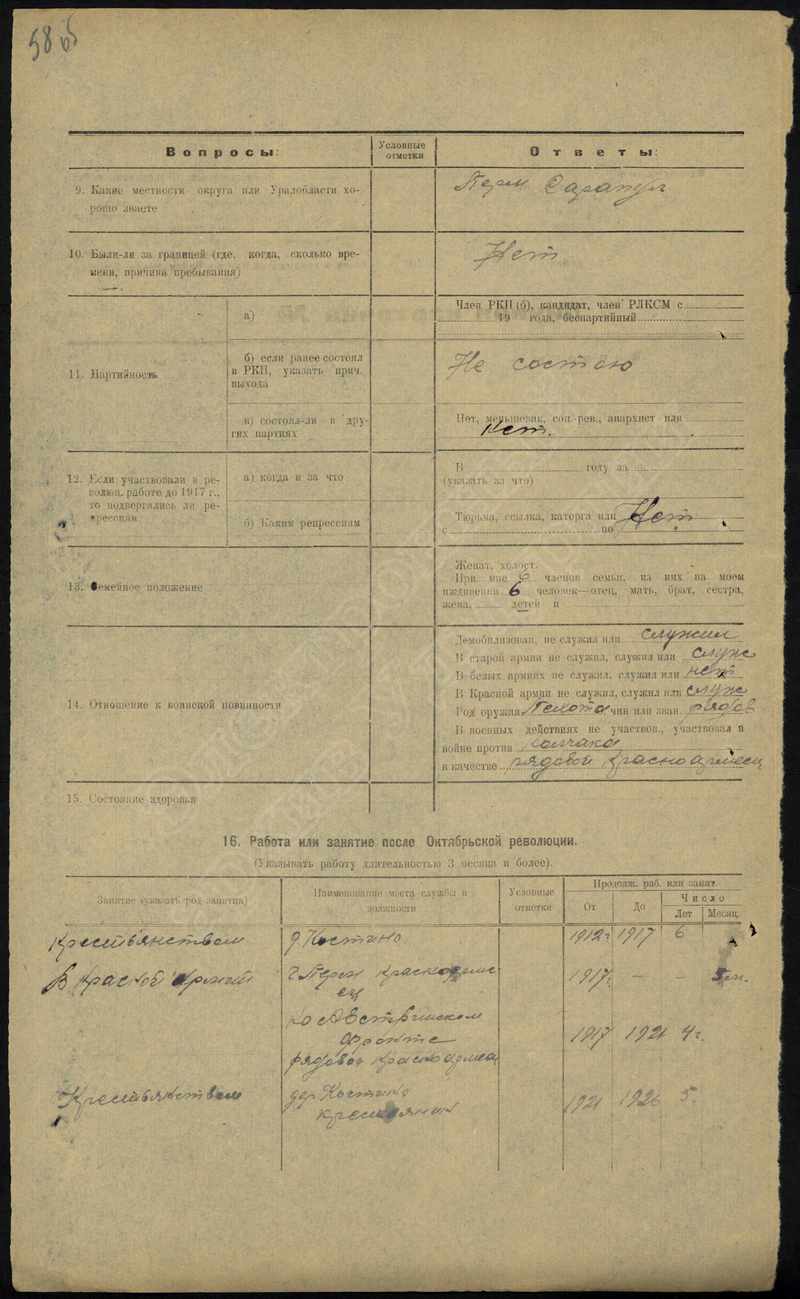 58 об
Вопросы:
Условные
отметки
Ответы:
9. Какие местности округа или Уралобласти хо-
рошо знаете
Перм Сарапул
10. Были-ли за границей (где, когда, сколько вре-
мени, причина пребывания)
Нет
11. Партийность
а)
Член РКП (б), кандидат, член РЛКСМ с
19 года, беспартийный
б) если ранее состоял
в РКП, указать прич.
выхода
Не состою
в) состоял-ли в дру-
гих партиях
Нет, меньшевик, соц.-рев., анархист или
Нет.
12. Если участвовали в ре-
волюц. работе до 1917 г.,
то подвергались ли ре-
прессиям
а) когда и за что
В году за
(указать за что)
б) Каким репрессиям
Тюрьма, ссылка, каторга или Нет
с по
13. Семейное положение
Женат, холост.
При мне членов семьи, из них на моем
иждивении 6 человек—отец, мать, брат, сестра,
жена, детей и
14. Отношение к воинской повинности
Демобилизован, не служил или служил
В старой армии не служил, служил или служ
В белых армиях не служил, служил или нет
В Красной армии не служил, служил или служ
Род оружия Пехота чин или зван. рядов
В военных действиях не участвов., участвовал в
войне против Колчака
в качестве рядовой красноармеец
15. Состояние здоровья
16. Работа или занятие после Октябрьской революции.
(Указывать работу длительностью 3 месяца и более).
Занятие (указать род занятия)
Наименование места службы и
должности
Условные
отметки
Продолж. раб. или занят.
От
До
Число
Лет
Месяц.
Крестьянством д Костино 1912 г 1917 6
В красной армии г Перм красноармее 1917 г — — 5 м.
ец
фронте 1917 1921 4 г.
рядовой красноармеец
Крестьянством дер Костино 1921 1926 5.
крестьянин